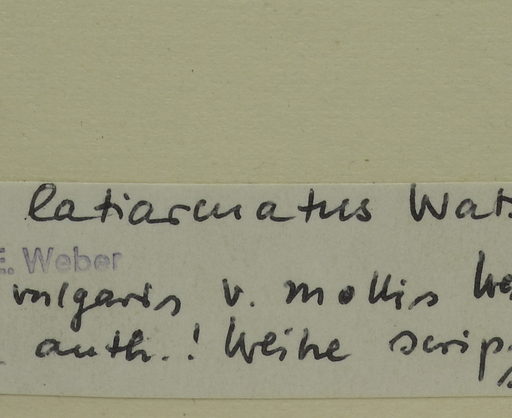 latiarcuatus Wats
E. Weber
vulgaris v. mollis We
auth.! Weihe scrips